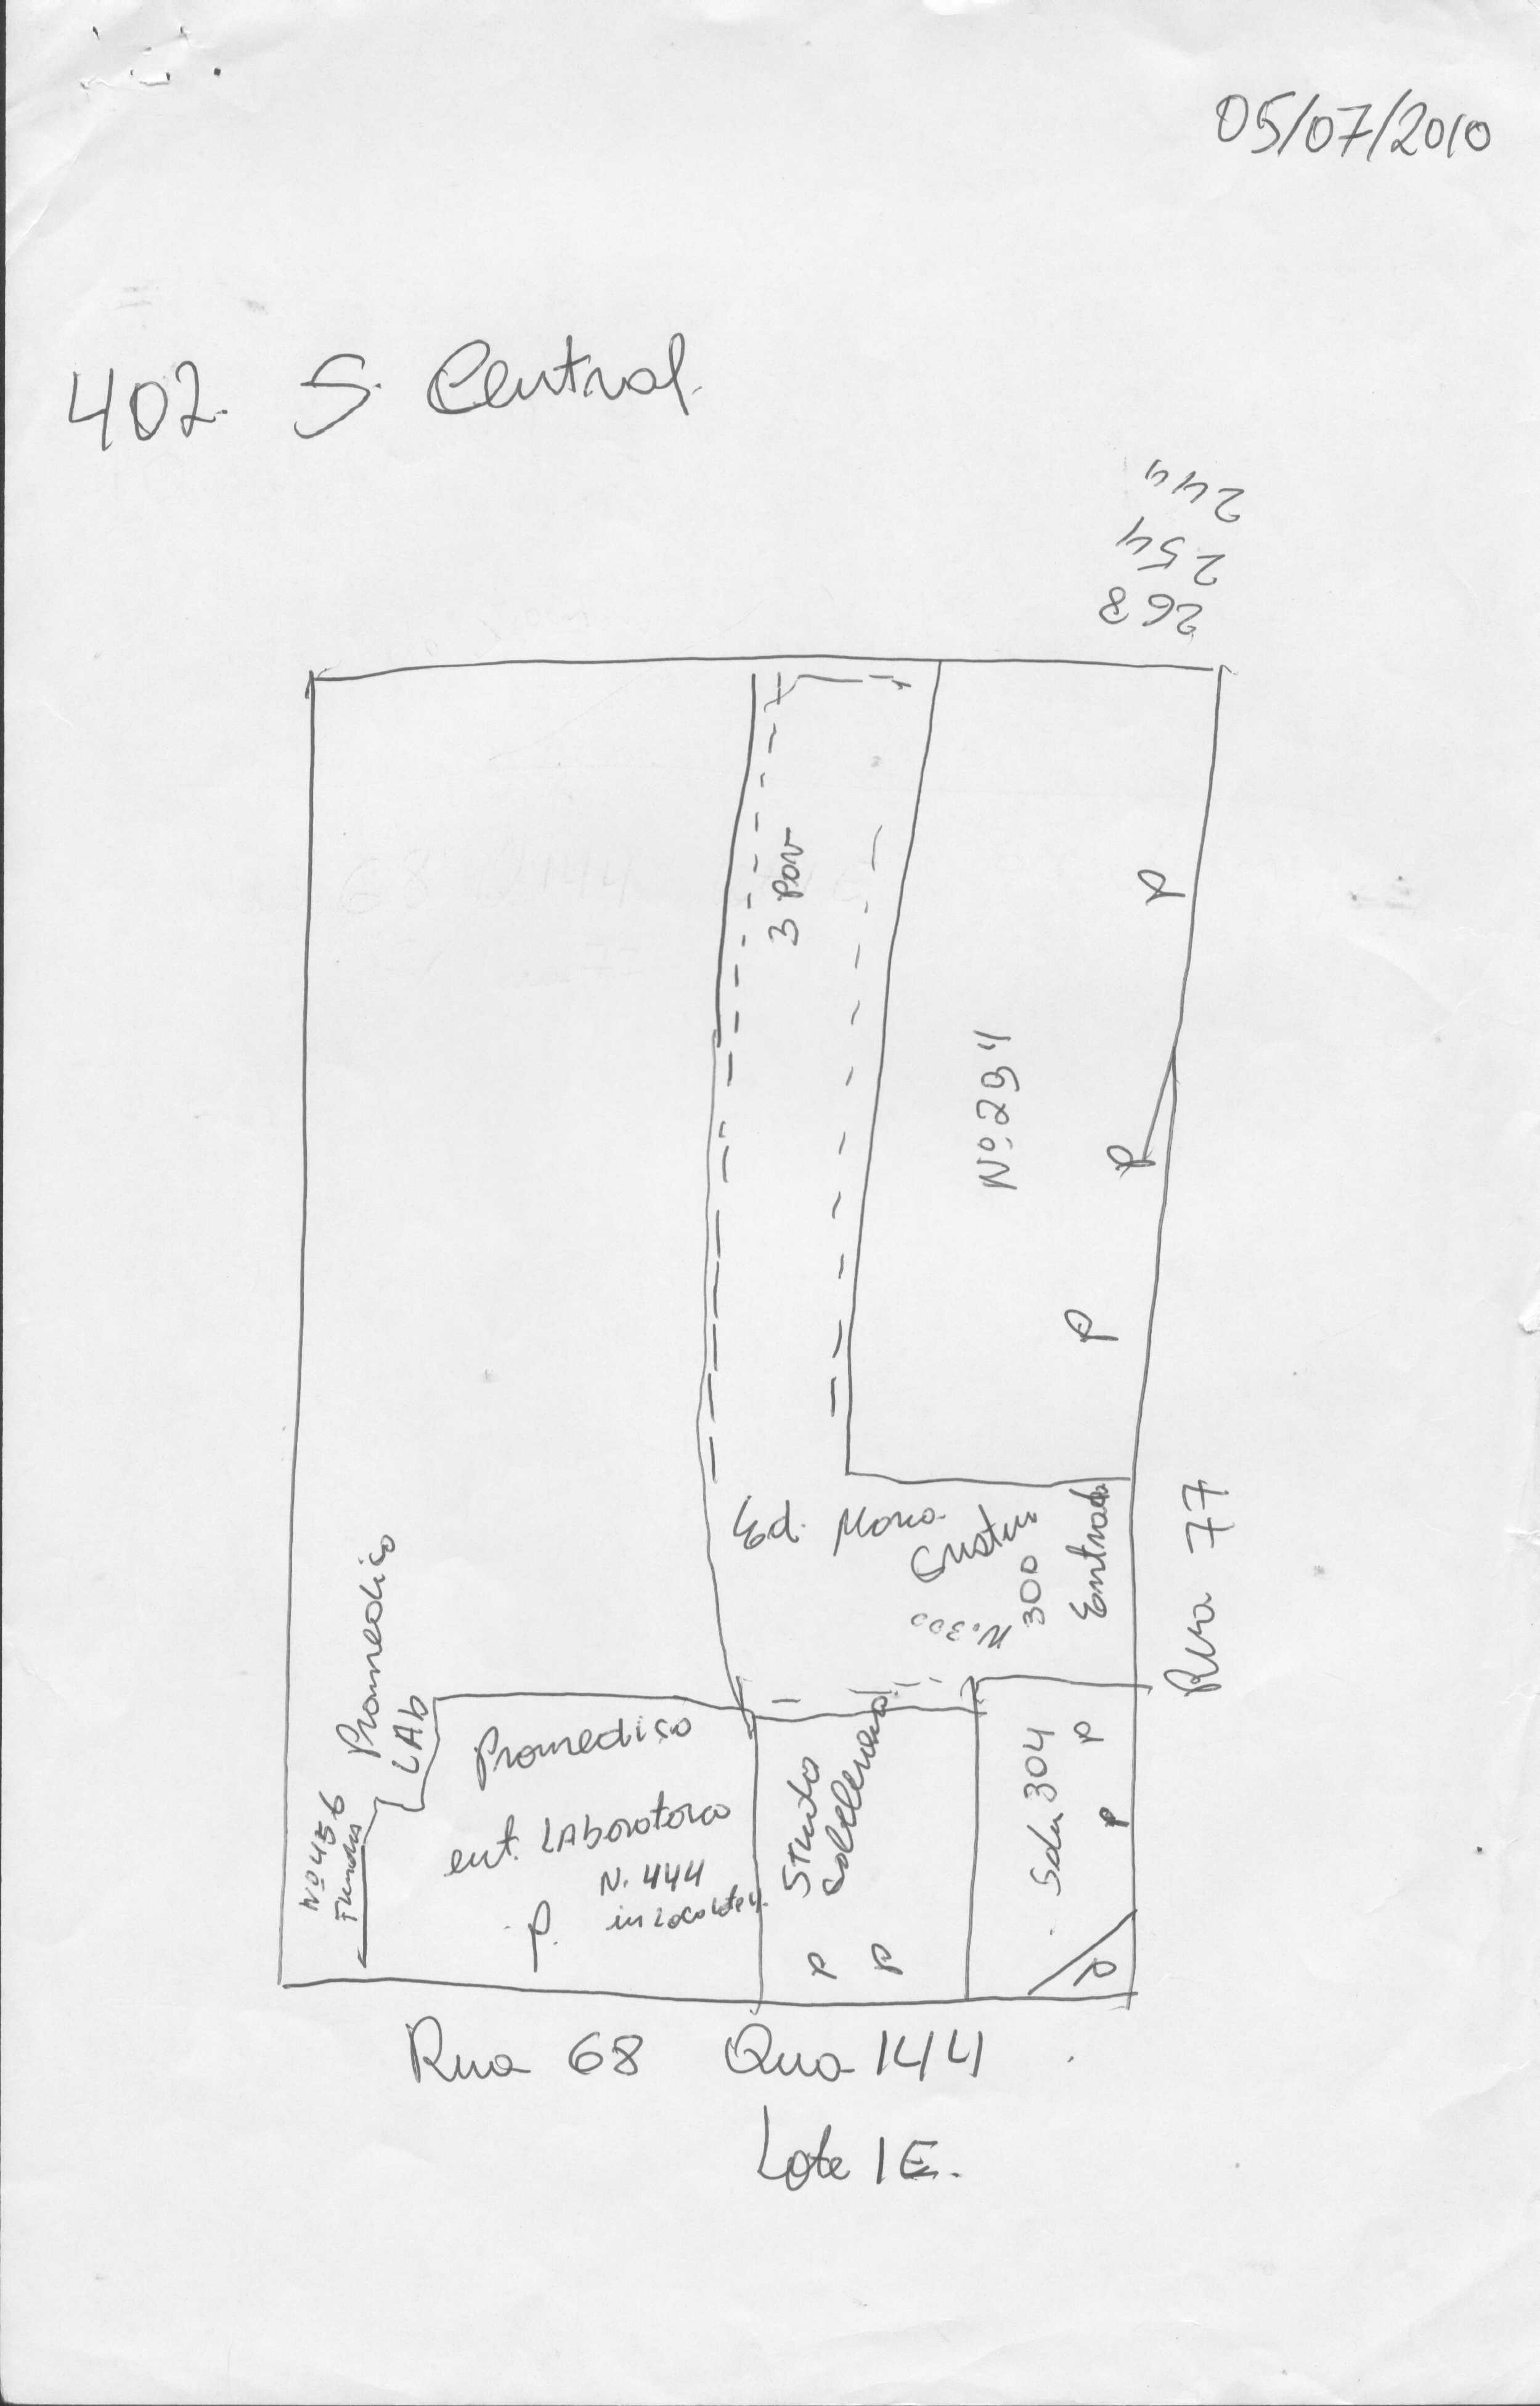 05/07/2010
402. S. Central.
244
254
268
3 Pav
P
Nº 294
P
P
Ed. Maria
Cristina
N. 300
300
Entrada
Rua 77
Promedico
LAb
Nº 456
Fundos
Promedico
ent. LAboratorio
N. 444
in Loco Lote 4.
P.
Studio
P
P
304
P
P
P
Rua 68 Qua 144
Lote 1E.